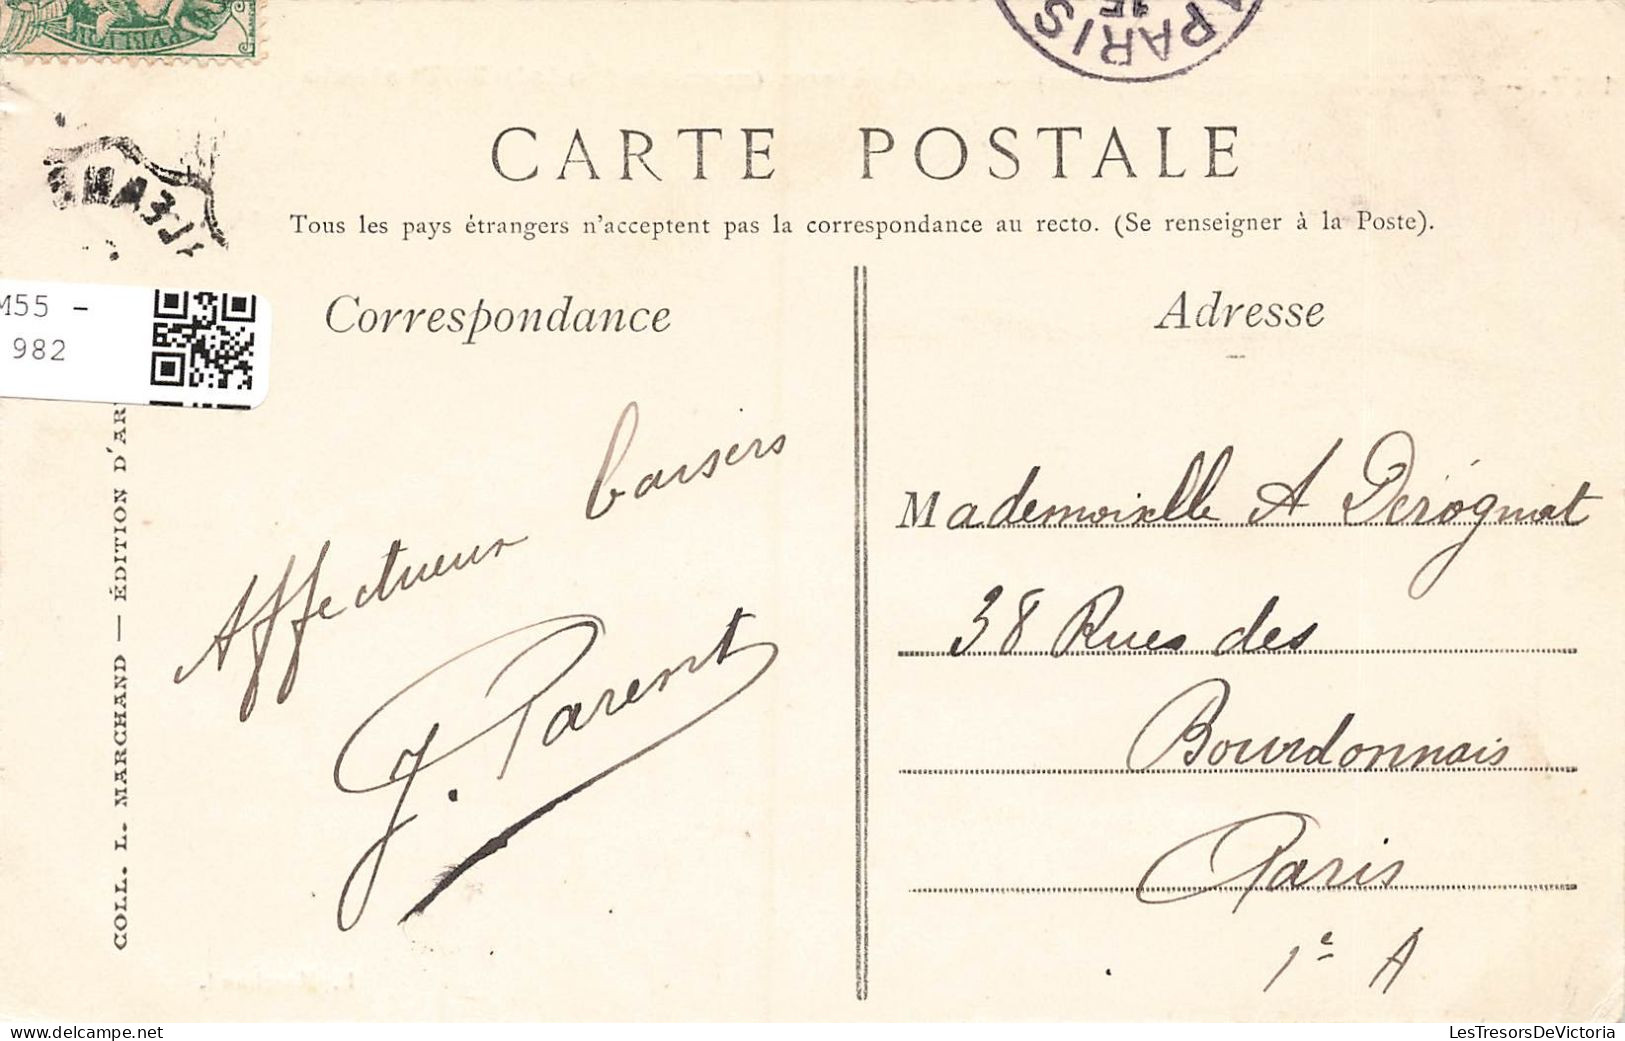 PARIS
15
CARTE POSTALE
Tous les pays étrangers n'acceptent pas la correspondance au recto. (Se renseigner à la Poste).
M55 -
982
Correspondance
Affectueux baisers
J. Parent
COLL. L. MARCHAND — ÉDITION D'AR
Adresse
Mademoiselle A Dérognat
38 Rues des
Bourdonnais
Paris
1e A
LesTresorsDeVictoria
delcampe.net